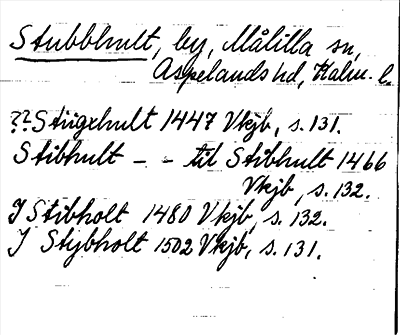 Stubbhult, by, Målilla sn,
Aspelands hd, Kalm. l.
?? Stügxhult 1447 Vkjb, s. 131.
Stibhult - - til Stibhult 1466
Vkjb, s. 132.
J Stibholt 1480 Vkjb, s. 132.
J Stybholt 1502 Vkjb, s. 131.